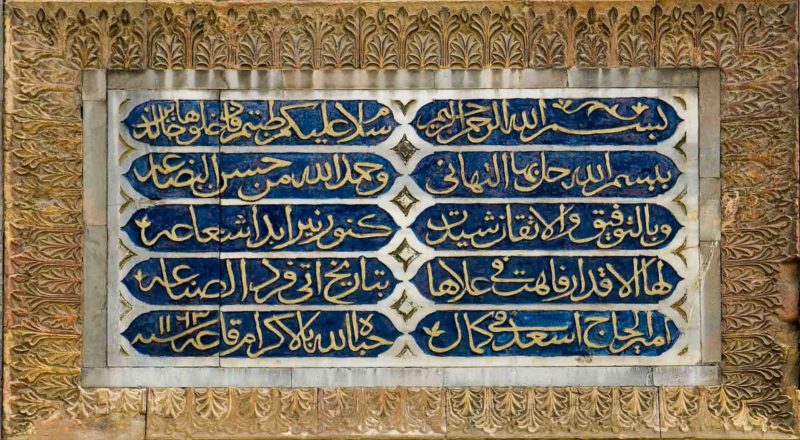 بسم الله الرحمن الرحيم سلام عليكم طبتم فادخلوها خالدين
ببسم الله حل بها التهاني وحمد الله من حسن البضاعه
وبالتوفيق والاتقان شيدت كنور نير ابدا شعاعه
لها الاقدار فاهت في علاها بتاريخ اتى فرد الصناعه
امير الحاج اسعد في كمال حباه الله بالاكرام قاعه سنه ١١٦٣